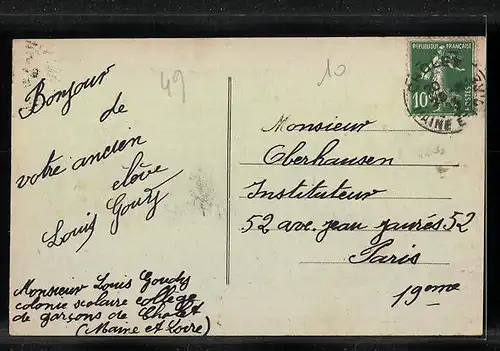 Bonjour
de
votre ancien
élève
Louis Goudy
Monsieur Louis Goudy
colonie scolaire collège
de garçons de Cholet
(Maine et Loire)
49
10
REPUBLIQUE FRANÇAISE
10c
POSTES
CHOLET
MAINE E
Monsieur
Oberhausen
Instituteur
52 ave. jean jaurés 52
Paris
19eme